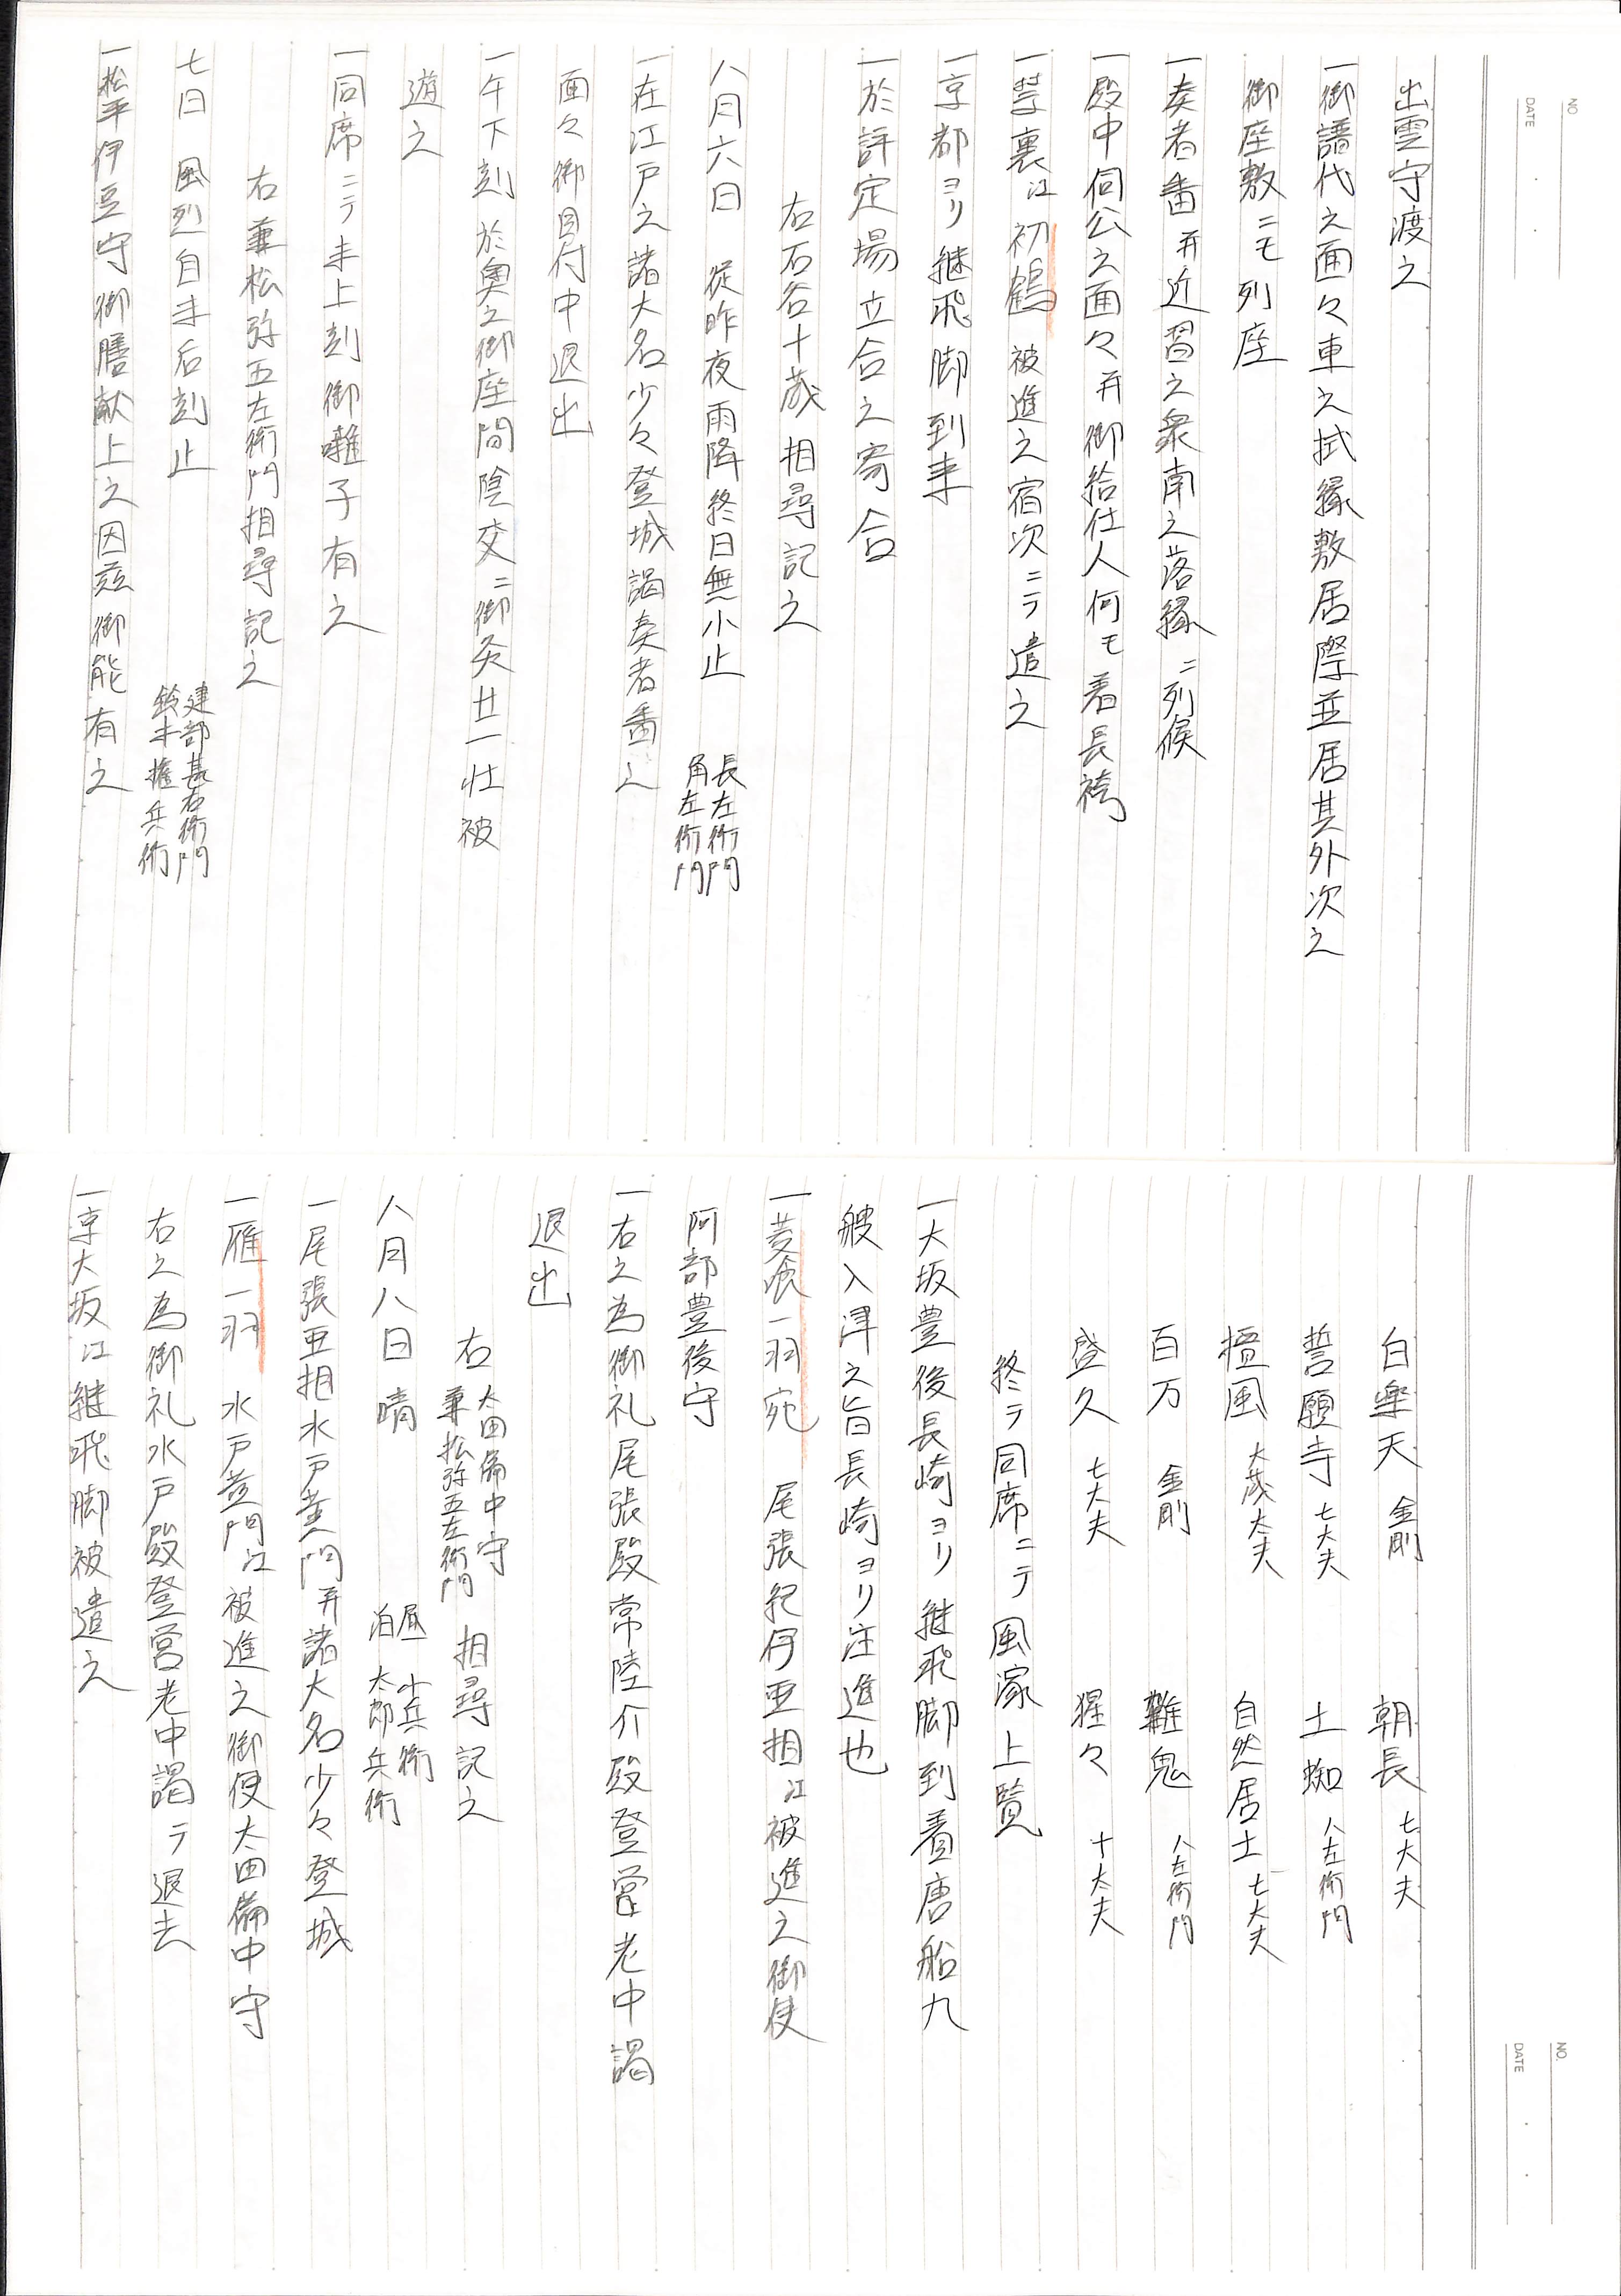 NO.
DATE
出雲守渡之
一御譜代之面々車之拭縁敷居際並居其外次之
御座敷ニモ列座
一奏者番并近習之衆南之落縁ニ列候
一殿中伺公之面々并御給仕人何モ着長袴
一禁裏江初鶴被進之宿次ニテ遣之
一京都ヨリ継飛脚到来
一於評定場立合之寄合
右石谷十蔵相尋記之
八月六日 従昨夜雨降終日無小止 長左衛門
角左衛門
一在江戸之諸大名少々登城謁奏者番之
面々御目付中退出
一午下刻於奥之御座間陰交ニ御灸廿一壮被
遊之
一同席ニテ未上刻御囃子有之
右兼松弥五左衛門相尋記之
七日 風烈自未后刻止 建部甚右衛門
鈴木権兵衛
一松平伊豆守御膳献上之因茲御能有之
NO.
DATE
白楽天 金剛 朝長 七大夫
誓願寺 七大夫 土蜘 八左衛門
檀風 大蔵大夫 自然居士 七大夫
百万 金剛 難鬼 八左衛門
盛久 七大夫 猩々 十大夫
終テ同席ニテ風流上覧
一大坂豊後長崎ヨリ継飛脚到着唐船九
艘入津之旨長崎ヨリ注進也
一菱喰一羽宛 尾張紀伊亜相江被進之御使
阿部豊後守
一右之為御礼尾張殿常陸介殿登営老中謁
退出
右 太田備中守
兼松弥五左衛門 相尋記之
八月八日 晴 昼 小兵衛
泊 太郎兵衛
一尾張亜相水戸黄門并諸大名少々登城
一雁一羽 水戸黄門江被進之御使太田備中守
右之為御礼水戸殿登営老中謁テ退去
一京大坂江継飛脚被遣之